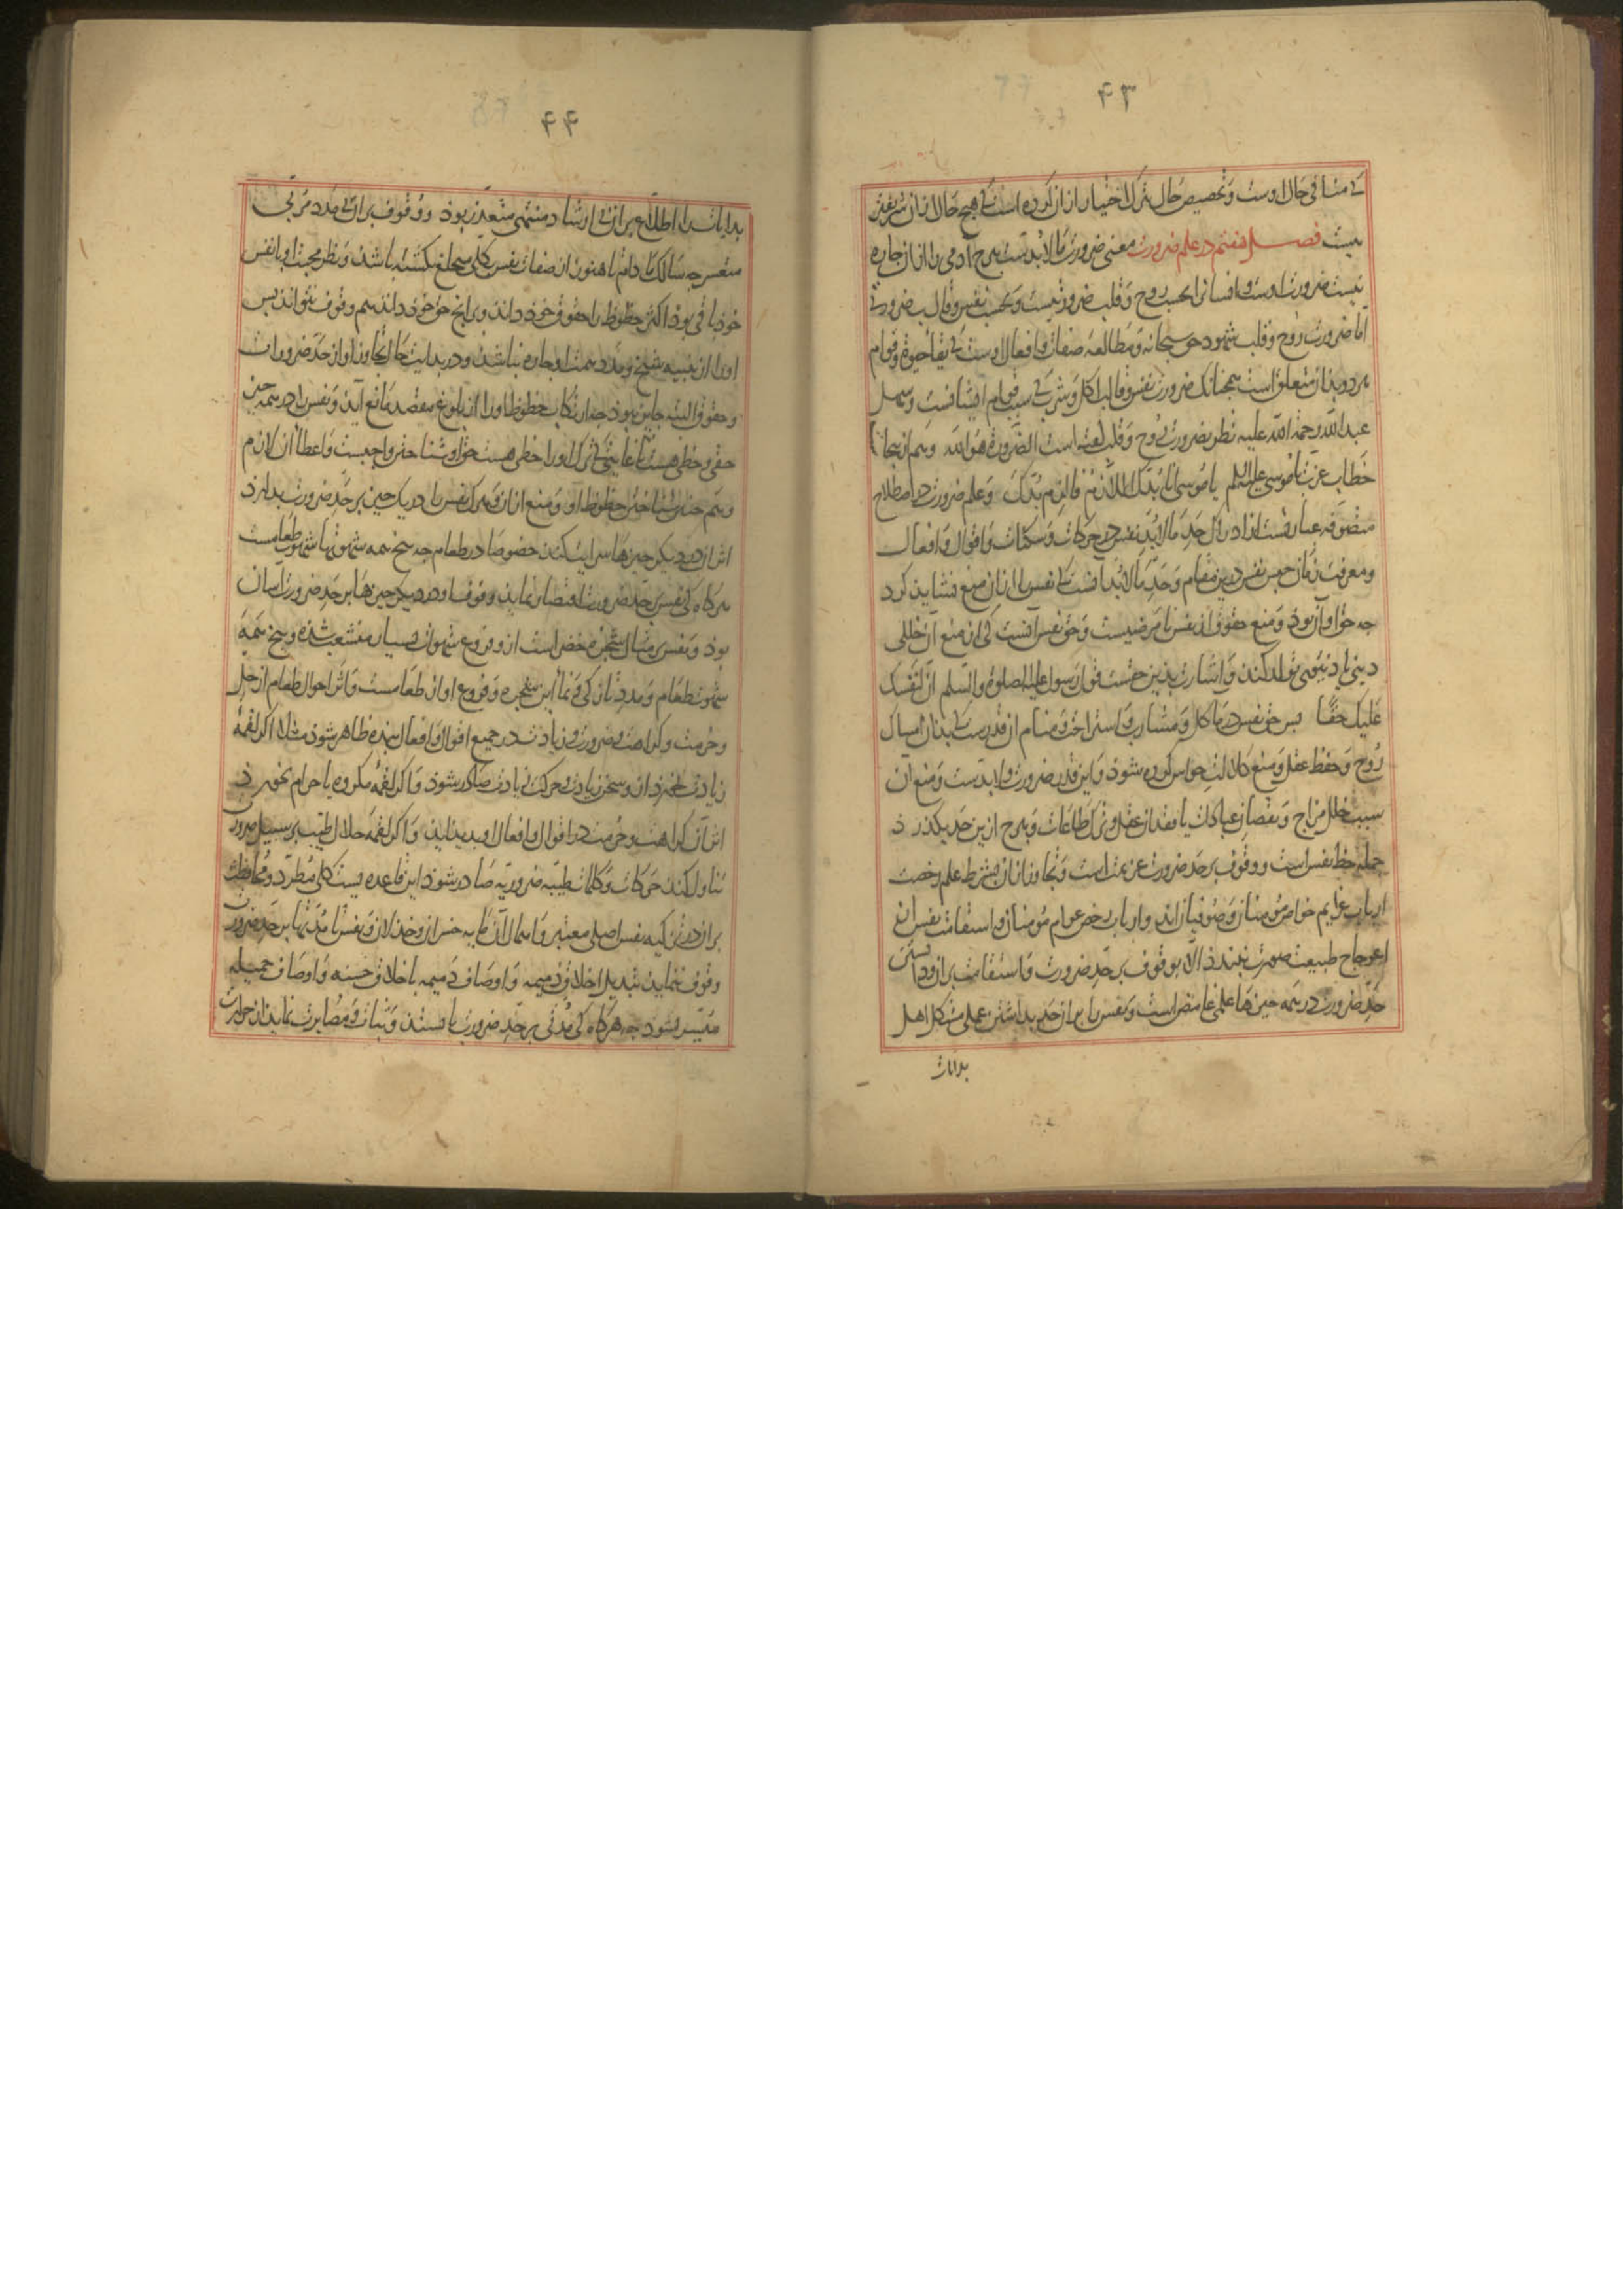 ۴۳
کی منافی حال اوست و تخصیص حال بترک اختیار از ان کرده است کی هیچ حال از ان شریفتر
نیست فصل هفتم در علم ضرورت معنی ضرورت مالابدست هرچ آدمی را از ان چاره
نیست ضرورت اوست و انسانی بحسب روح و قلب ضرورتیست و بحسب نفس و قالب ضرورتی
اما ضرورت روح و قلب شهود حق سبحانه و مطالعه صفات و افعال اوست کی بقا حیوة و قوام
هر دو بذان متعلق است همچنانک ضرورت نفس و قالب اکل و شربی کی سبب قوام ایشانست و سهل
عبدالله رحمة الله علیه نظر بضرورت روح و قلب گفته است الضرورة هو الله و هم از نجا
خطاب عزت با موسی علیه السلم یا موسی انا بدک اللازم فالزم بدک و علم ضرورت در اصطلاح
متصوفه عبارتست از ادراک حد مالابد نفس در حرکات و سکنات و اقوال و افعال
و معرفت زمان حبس نفس درین مقام و حد مالابد آنست کی نفس را از ان منع نشاید کرد
جه حق او آن بوذ و منع حقوق از نفس نا مرضیست و حق نفس آنست کی از منع آن خللی
دینی یا دنیوی تولد کند و اشارت بذین حقست قول رسول علیه الصلوة و السلم ان لنفسک
علیک حقا بس حق نفس در ماکل و مشارب و استراحت و منام آن قدرست کی بدان امساک
روح و حفظ عقل و منع کلالت حواس کرده شوذ و این قدر ضرورت و لابدست و منع آن
سبب خلل مزاج و نقصان عبادات یا فقدان عقل و ترک طاعات و هرچ ازین حد بکذرذ
جمله حظ نفس است و وقوف بر حد ضرورت عزیمت است و تجاوز از ان بشرط علم رخصت
ارباب عزایم خواص مومنان و صوفیان اند و ارباب رخص عوام مومنان و استقامت نفس از
اعوجاج طبیعت صورت نبندذ الا بوقوف بر حد ضرورت و استقامت بر ان و دانستن
حد ضرورت در همه چیزها علمی غامض است و نفس را بران حد بداشتن عملی مشکل اهل
بدایات
۴۴
بدایات را اطلاع بران بی ارشاد منتهی متعذر بوذ و وقوف بران بی مدد مربی
متعسر جه سالک مادام تا هنوز از صفات نفس بکلی منخلع نکشته باشذ و نظر محبت او با نفس
خوذ باقی بوذ اکثر حظوظ را حقوق خوذ داند و برانچ حق خوذ داند هم وقوف نتواند بس
او را از تنبیه شیخ و مدد همت او چاره نباشذ و در بدایت حال تجاوز او از حد ضرورات
و حقوق البته جایز نبوذ جه ارتکاب حظوظ او را از بلوغ مقصد مانع آید و نفس را در همه چیز
حقی و حظی هست تا غایتی کی ترک او را حظی هست حق او شناختن واجبست و اعطا آن لازم
و هم چنین شناختن حظوظ او و منع از ان و هرک نفس را در یک چیز بر حد ضرورت بدارذ
اثر آن در دیکر چیزها سرایت کند خصوصا در طعام جه بیخ همه شهوتها شهوت طعامست
هرکاه کی نفس بر حد ضرورت اقتصار نماید وقوف او در دیکر چیزها بر حد ضرورت آسان
بوذ و نفس بر مثال شجره خضر است از و فروع شهوات بسیار منشعب شذه و بیخ همه
شهوت طعام و مدد تازکی و نما این شجره و فروع او از طعامست و اثر احوال طعام از حل
و حرمت و کراهت و ضرورت و زیادت در جمیع اقوال و افعال بنده ظاهر شوذ مثلا اکر لقمه
زیادت خورذ از و سخن زیادت و حرکت زیادت صادر شوذ و اکر لقمه مکروه یا حرام بخورذ
اثر آن کراهت و حرمت در اقوال و افعال او بدید آید و اکر لقمه حلال طیب بر سبیل ضرورت
تناول کند حرکات و کلمات طیبه ضروریه صادر شوذ این قاعده ایست کلی مطرد و محافظت
بران در تزکیه نفس اصلی معتبر و اهمال آن مایه خسران و خذلان و نفس تا مدتها بر حد ضرورت
وقوف ننماید تبدیل اخلاق ذمیمه و اوصاف دمیمه باخلاق حسنه و اوصاف جمیله
میسر نشوذ جه هرکاه کی مدتی بر حد ضرورت بایستد و ثبات و مصابرت نماید از حرارت